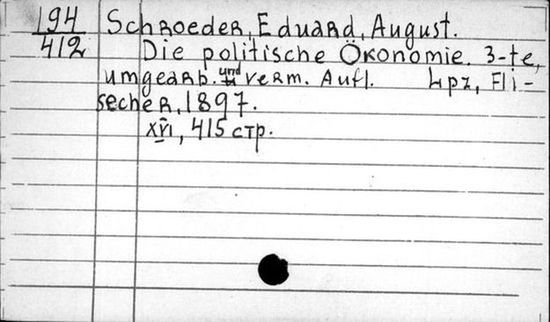 194 Schroeder, Eduard, August.
412 Die politische Ökonomie. 3-te,
umgearb. und verm. Aufl. Lpz, Fli-
secher, 1897.
XVI, 415 стр.